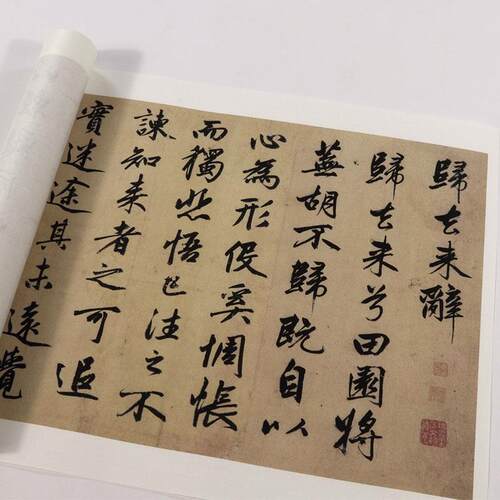 歸去来辭
歸去来兮田園將
蕪胡不歸既自以
心為形役奚惆悵
而獨悲悟已往之不
諫知来者之可追
實迷途其未遠覺